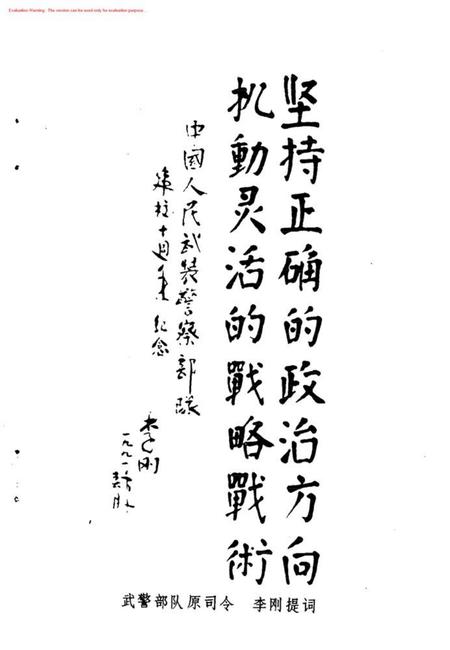 Evaluation Warning : The version can be used only for evaluation purpose...
坚持正确的政治方向
机動灵活的戰略戰術
中國人民武装警察部隊
建校十週年纪念
李刚
一九九一
武警部队原司令 李刚提词